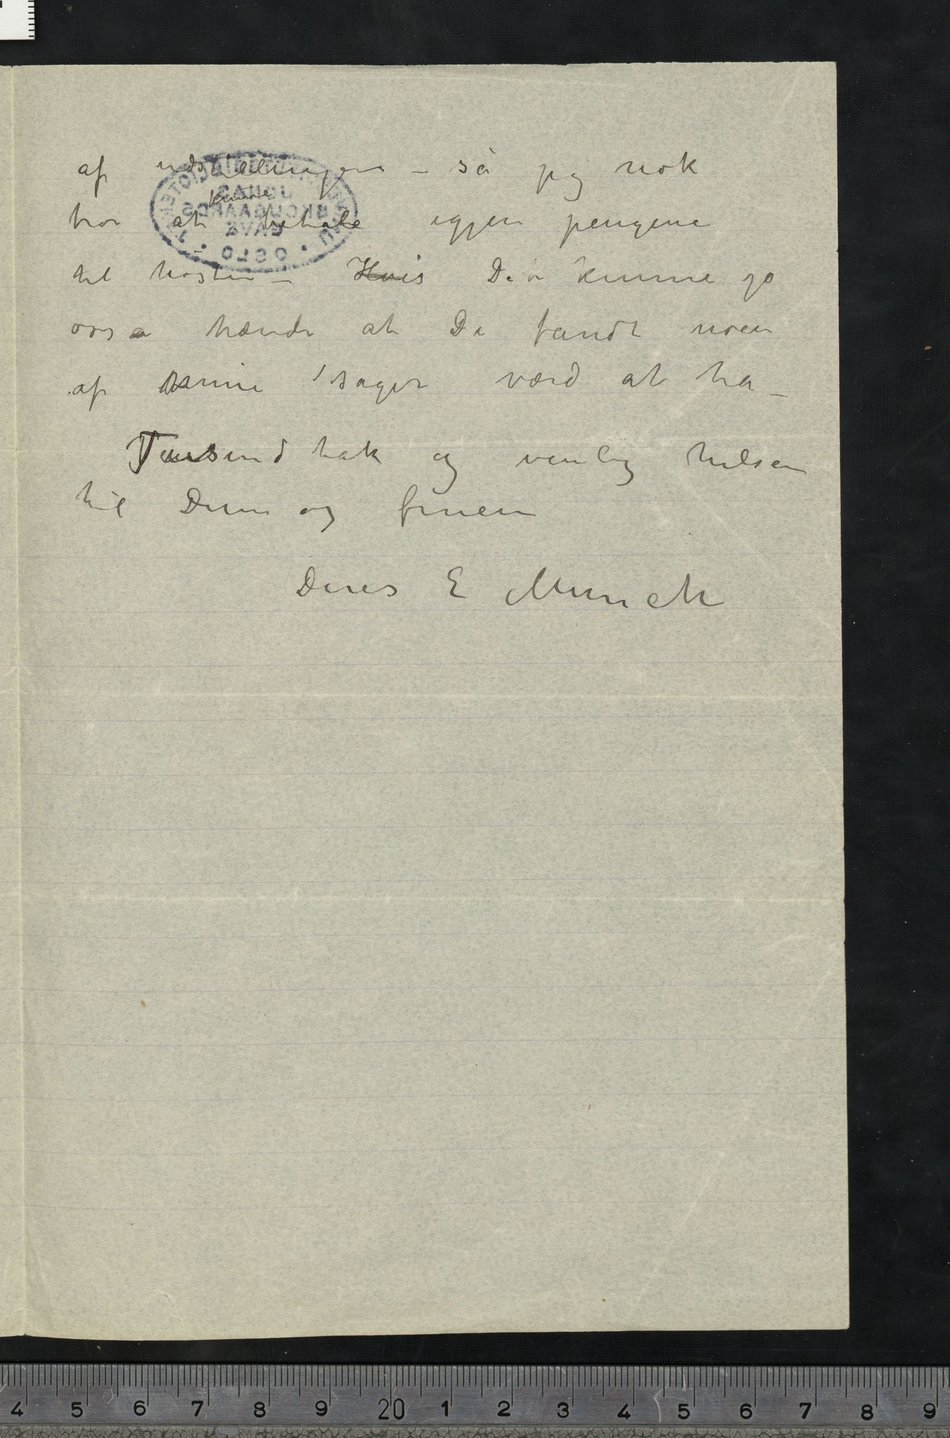 af udstillingen – så jeg nok
tror at kunne betale igjen pengene
til høsten – Hvis Det kunne jo
ossa hænde at De fandt noen
af mine sager værd at ha –
Tusend tak og venlig hilsen
til Dem og fruen
Deres E Munch
OSLO
4 5 6 7 8 9 20 1 2 3 4 5 6 7 8 9